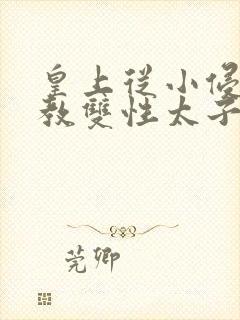 皇上從小侵
教雙性太子
莞卿